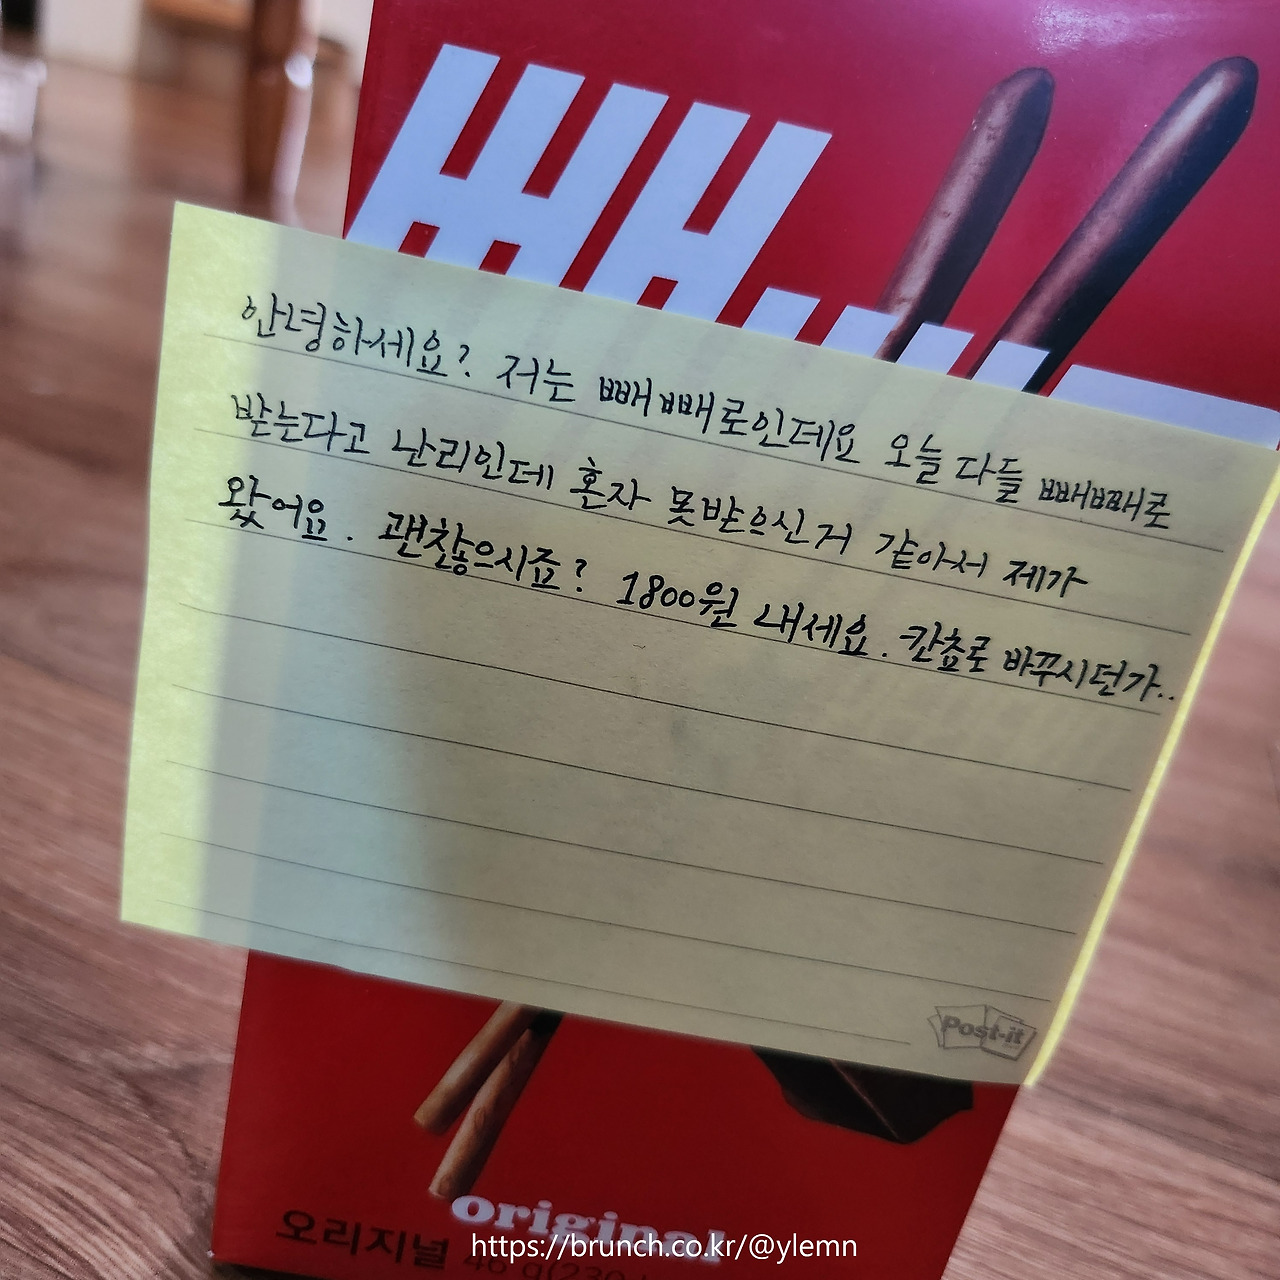 안녕하세요? 저는 빼빼로인데요 오늘 다들 빼빼로
받는다고 난리인데 혼자 못받으신거 같아서 제가
왔어요. 괜찮으시죠? 1800원 내세요. 칸쵸로 바꾸시던가..
Post-it
original
오리지널 46 g(230
https://brunch.co.kr/@ylemn